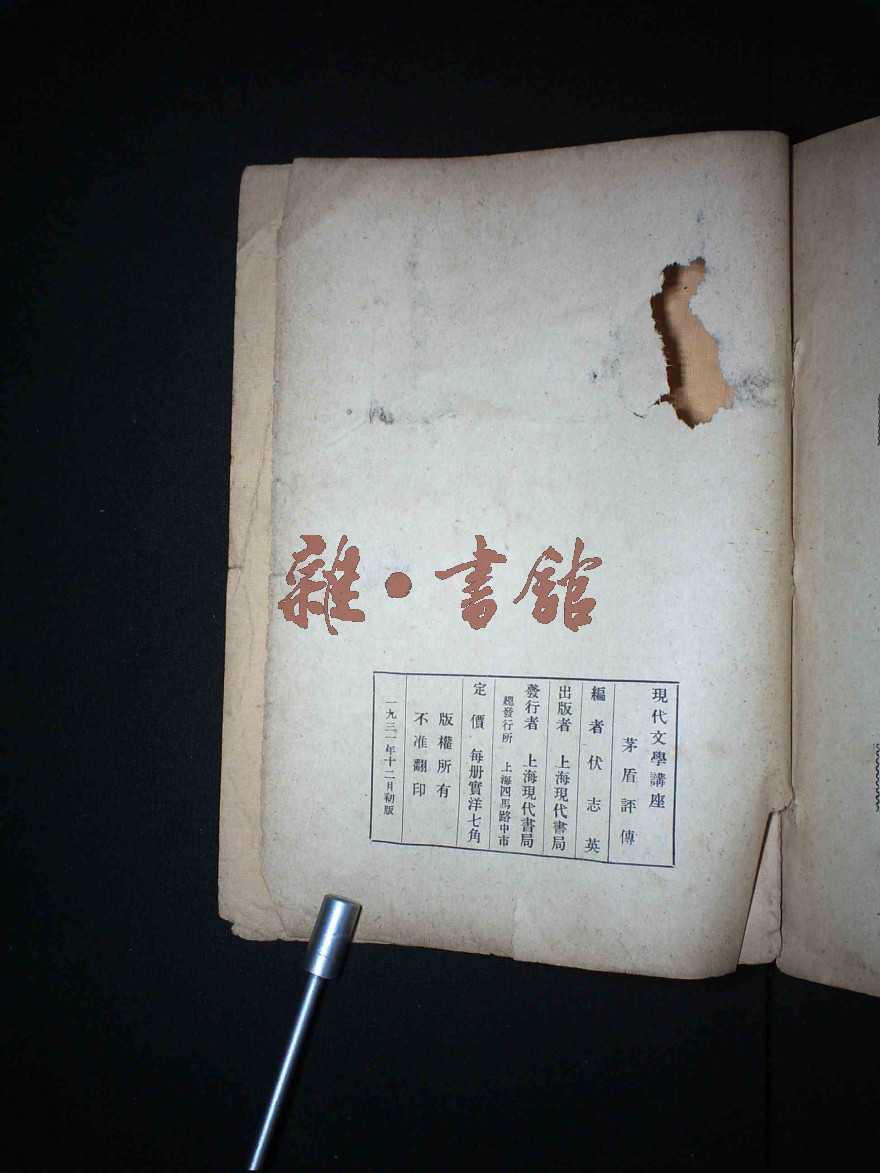 雜・書館
現代文學講座
茅盾評傳
編者 伏志英
出版者 上海現代書局
發行者 上海現代書局
總發行所 上海四馬路中市
定價 每册實洋七角
版權所有
不准翻印
一九三一年十二月初版